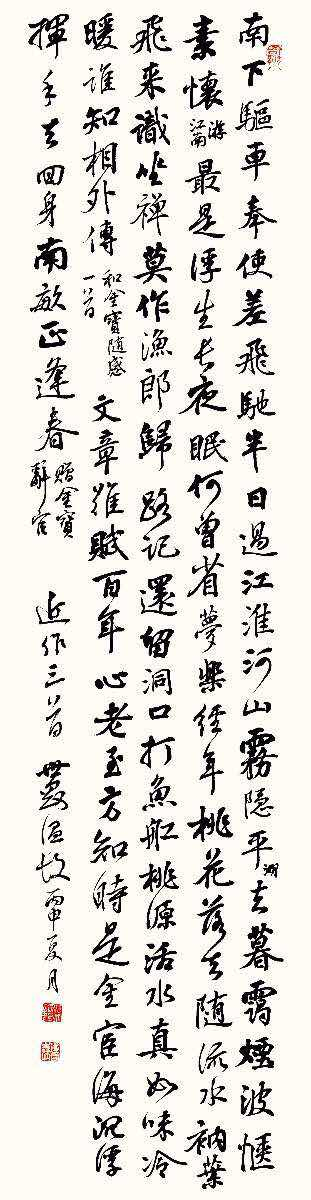 南下驅車奉使差飛馳半日過江淮河山霧隱平湖去暮靄煙波愜
素懷游江南最是浮生長夜眠何曾省夢樂經年桃花落去隨流水衲葉
飛来識坐禪莫作漁郎歸路記還留洞口打魚船桃源活水真如味冷
暖誰知相外傳和金寶隨感一首文章難賦百年心老至方知時是金宦海沉浮
揮手去回身南畝正逢春贈金寶辭官近作三首溫故丙申夏月